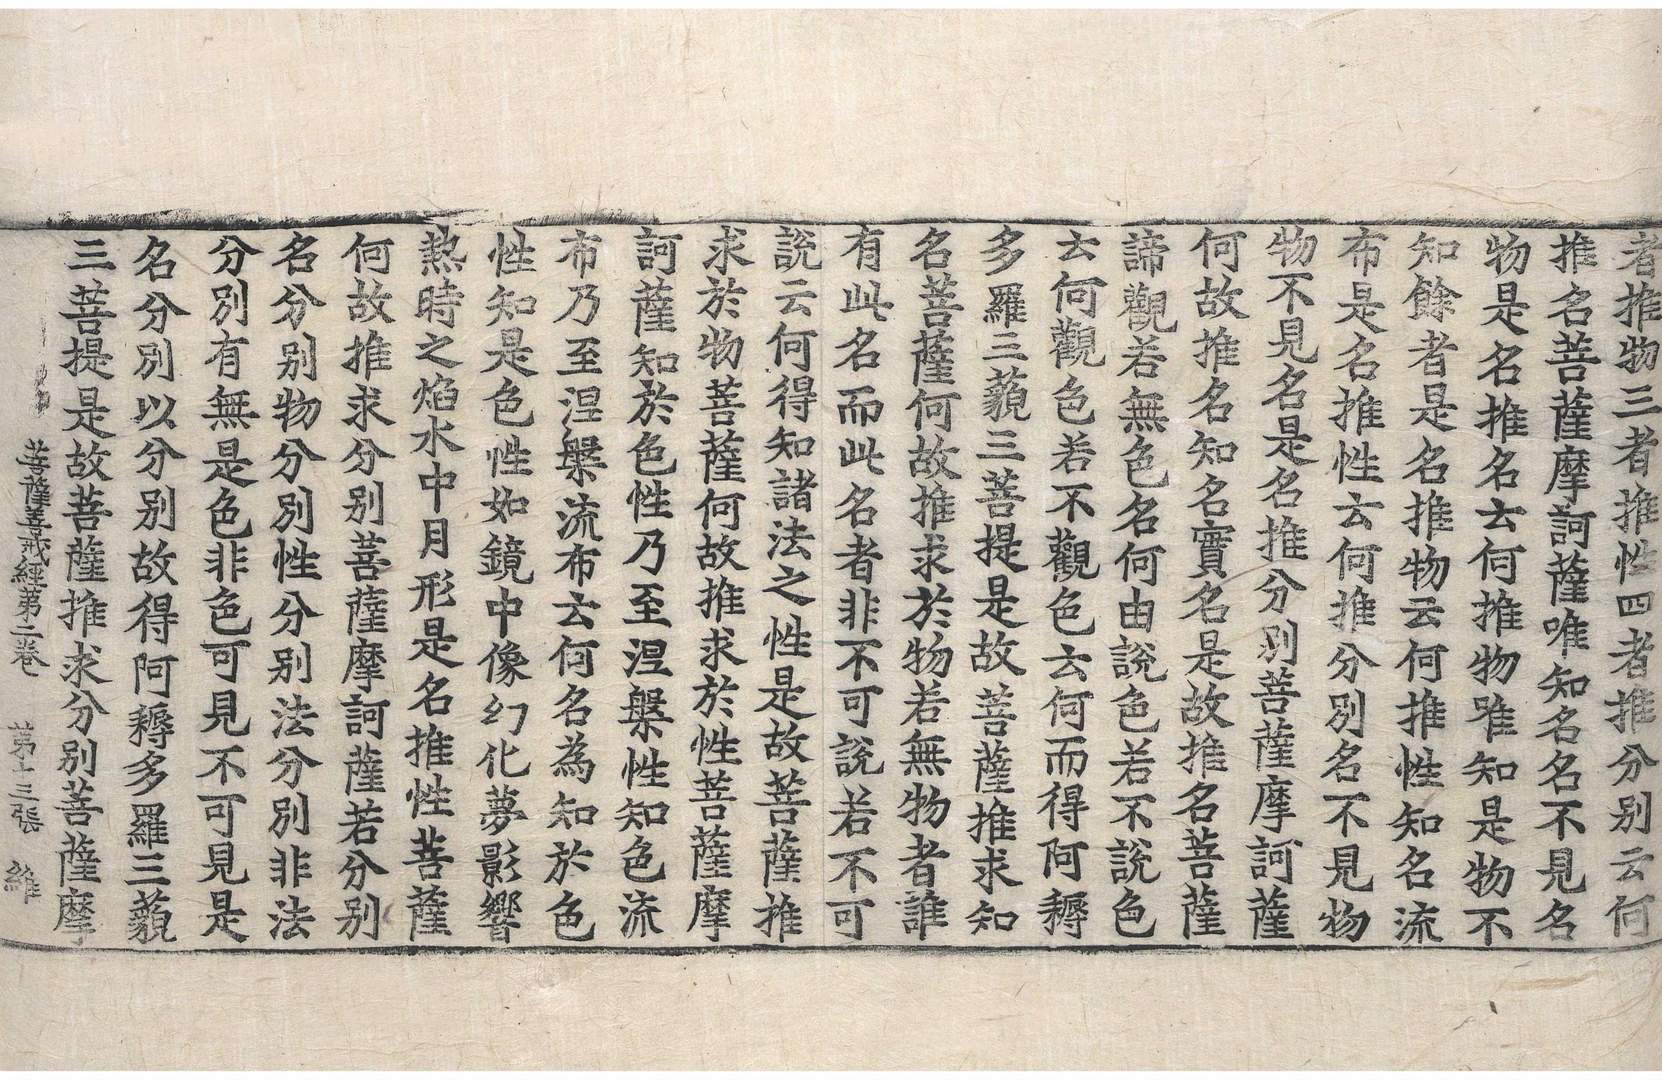 者推物三者推性四者推分別云何
推名菩薩摩訶薩唯知名名不見名
物是名推名云何推物唯知是物不
知餘者是名推物云何推性知名流
布是名推性云何推分別名不見物
物不見名是名推分別菩薩摩訶薩
何故推名知名實名是故推名菩薩
諦觀若無色名何由說色若不說色
云何觀色若不觀色云何而得阿耨
多羅三藐三菩提是故菩薩推求知
名菩薩何故推求於物若無物者誰
有此名而此名者非不可說若不可
說云何得知諸法之性是故菩薩推
求於物菩薩何故推求於性菩薩摩
訶薩知於色性乃至涅槃性知色流
布乃至涅槃流布云何名為知於色
性知是色性如鏡中像幻化夢影響
熱時之焰水中月形是名推性菩薩
何故推求分別菩薩摩訶薩若分別
名分別物分別性分別法分別非法
分別有無是色非色可見不可見是
名分別以分別故得阿耨多羅三藐
三菩提是故菩薩推求分別菩薩摩
菩薩善戒經第二卷 第十三張 維